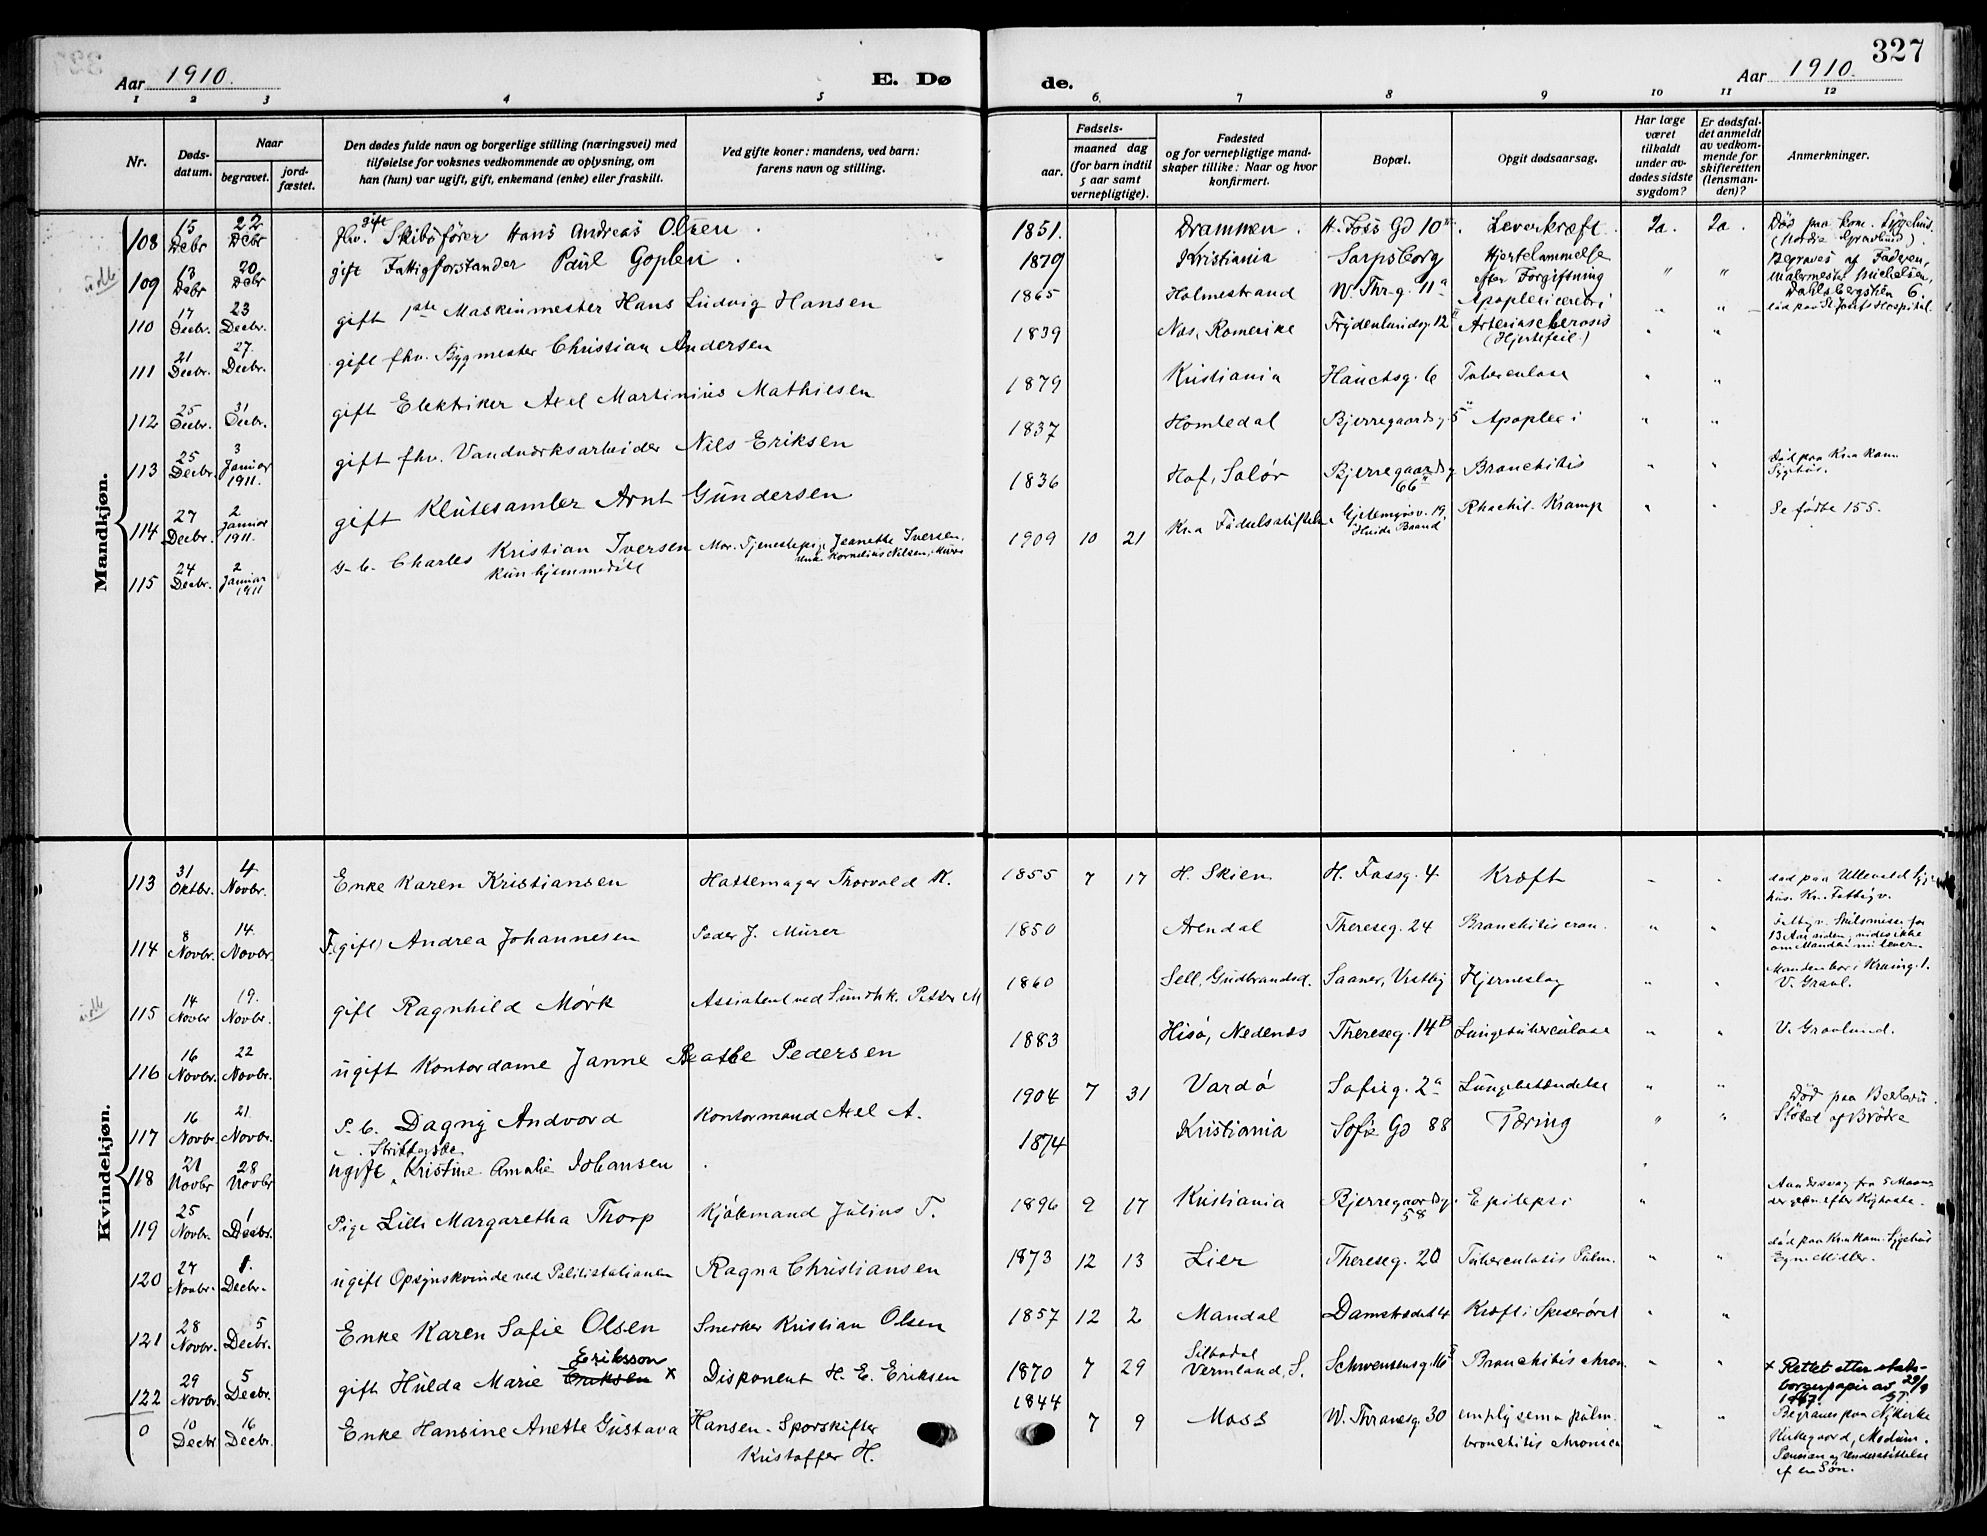 327
Aar 1910. E. Dø de. Aar 1910.
1 2 3 4 5 6. 7 8 9 10 11 12
Nr.
Døds-
datum.
Naar
begravet.
jord-
fæstet.
Den dødes fulde navn og borgerlige stilling (næringsvei) med
tilføielse for voksnes vedkommende av oplysning, om
han (hun) var ugift, gift, enkemand (enke) eller fraskilt.
Ved gifte koner: mandens, ved barn:
farens navn og stilling.
Fødsels-
aar.
maaned dag
(for barn indtil
5 aar samt
vernepligtige).
Fødested
og for vernepligtige mand-
skaper tillike: Naar og hvor
konfirmert.
Bopæl.
Opgit dødsaarsag.
Har læge
været
tilkaldt
under av-
dødes sidste
sygdom?
Er dødsfal-
det anmeldt
av vedkom-
mende for
skifteretten
(lensman-
den)?
Anmerkninger.
Mandkjøn.
108 15 Debr 22 Debr fhv. gift Skibsfører Hans Andreas Olsen. 1851. Drammen. H. Foss Gd 10 Leverkræft. Ja. Ja. Død paa kom. Sygehus.
(Nordre Gravlund).
109 13 Debr 20 Debr gift Fattigforstander Paul Goplen. 1879 Kristiania Sarpsborg Hjertelammelse
efter Forgiftning " " Begraves af Faderen,
Malermester Michelsen,
Dahlsbergstien 6.
110 17 Decbr. 23 Decbr. gift 1ste Maskinmester Hans Ludvig Hansen 1865 Holmestrand W. Thr.g. 11a Apoplexi cerebri " " død paa St. Josefs Hospital.
111 21 Decbr. 27. Decbr. gift fhv. Bygmester Christian Andersen 1839 Nes, Romerike Frydenlundsg. 12 Arteriosclerosis
(Hjertefeil.) " "
112 25 Decbr. 31 Decbr. gift Elektriker Axel Martinius Mathiesen 1879 Kristiania Hauchsg. 6 Tuberculose " "
113 25 Decbr. 3 Januar 1911. gift fhv. Vandværksarbeider Nils Eriksen 1837 Homledal Bjerregaardsg 5 Apoplexi " "
114 27 Decbr. 2 Januar 1911. gift Klutesamler Arnt Gundersen 1836 Hof, Solør Bjerregaardsg
66 Bronchitis " " død paa Kr.a kom.
Sygehus.
115 24 Decbr. 2 Januar 1911 g-b. Charles Kristian Iversen
kun hjemmedøbt Mor. Tjenestepige Jeanette Iversen,
Unk Kornelius Nilsen, Murer 1909 10 21 Kr.a Fødselsstiftelse Gjetemyrsv. 19,
Huida Brand Rhachit. Kramp " " Se fødte 155.
Kvindekjøn.
113 31 Oktbr. 4 Novbr. Enke Karen Kristiansen Hattemager Thorvald K. 1855 7 17 H. Skien H. Fossg. 4 Kræft " " død paa Ullevold Syge-
hus. Kr. Fattigv.
114 8 Novbr. 14. Novbr. F.(gift) Andrea Johannesen Peder J. Murer 1850 Arendal Thereseg. 24 Bronchitis cron. " " Fattigv. Skilsmisse for
13 Aar siden, vides ikke
om Manden nu lever.
115 14 Novbr 19. Novbr. gift Ragnhild Mørk Assistent ved Sundhk. Petter M 1860 Sell, Gudbrandsd. Saaner, Vestby Hjerneslag " " Manden bor i Krasing. 1.
V. Gravl.
116 16 Novbr. 22 Novbr. ugift Kontordame Janne Beathe Pedersen 1883 Hisø, Nedenes Thereseg. 14B Lungetuberculose " " V. Gravlund.
117 16 Novbr. 21. Novbr. P. b. Dagny Andvord Kontormand Axel A. 1904 7 31 Vardø Sofieg. 2a Lungebetændelse " "
118 21 Novbr 28 Novbr ugift Strikkerske Kristine Amalie Johansen. 1874 Kristiania Sofie Gd 88 Tæring " " Død paa
Slottet af Brødre
119 25 Novbr. 1 Decbr. Pige Lilli Margaretha Thorp Kjøbmand Julius T. 1896 9 17 Kristiania Bjerregaardsg.
58 Epilepsi " Aandssvag fra 5 Maans
der gl. en efter Kighoste.
120 27 Novbr. 1. Decbr. ugift Opsynskvinde ved Politistationen Ragna Christiansen 1873 12 13 Lier Thereseg. 20 Tuberculosis Pulm. " " død paa Kr.a kom. Sygehus
Egne Midler.
121 28 Novbr. 5 Decbr. Enke Karen Sofie Olsen Snedker Kristian Olsen 1857 12 2 Mandal Damstrædet 4 Kræft i Spiserøret " "
122 29 Novbr. 5 Decbr. gift Hulda Marie Eriksen Eriksson x Disponent H. E. Eriksen 1870 7 29 Silbodal
Vermland, S. Schwensensg. 16 Bronchitis chron. " " x Rettet etter stats-
borgerpapir av 29/9
1967.
0 10 Decbr 16 Decbr. Enke Hansine Anette Gustava Hansen. Sporskifter
Kristoffer H. 1844 7 9 Moss W. Thranesg. 30 emplysema pulm.
bronchitis chronica " " Begraves paa Nykirke
Kirkegaard, Modum.
Pension og Understøttelse
af en Søn.